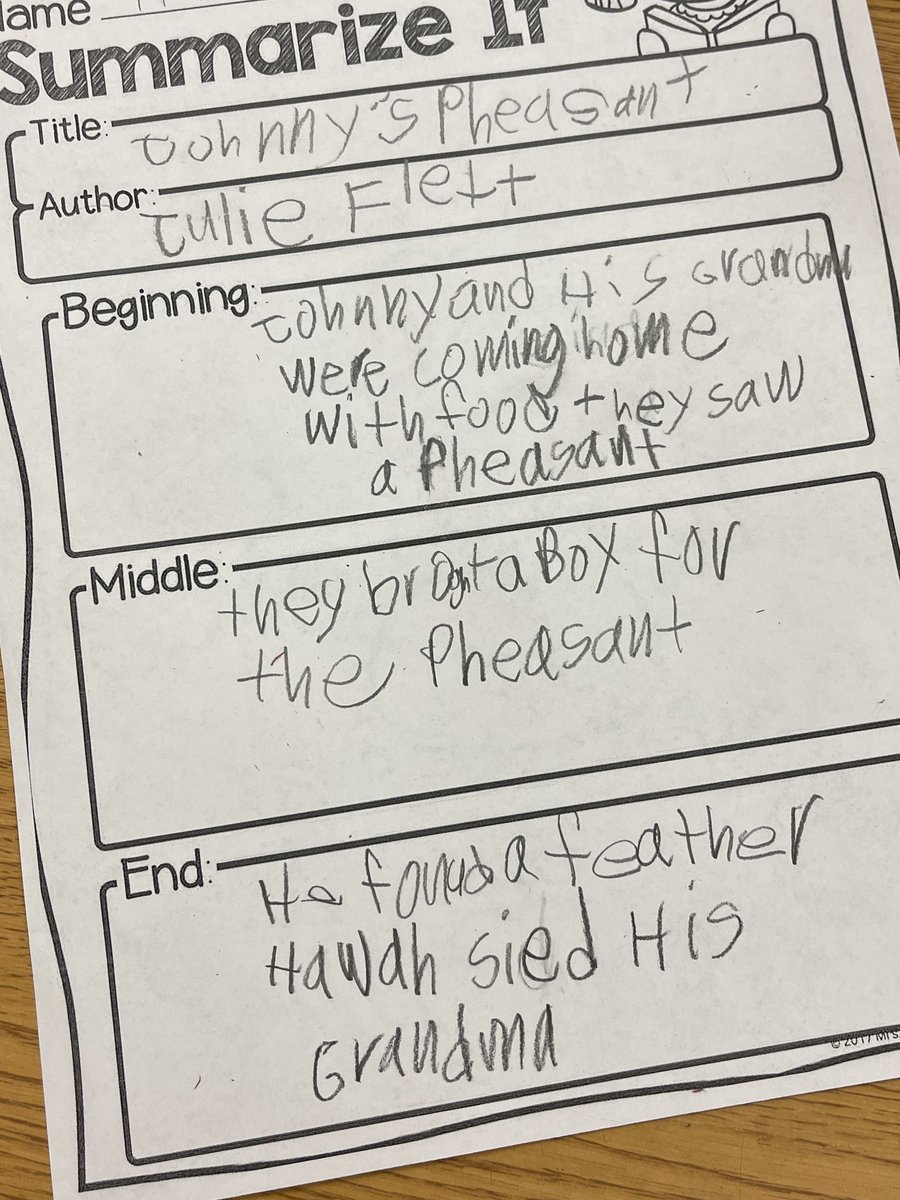 Name
Summarize It
Title: Johnny's Pheasant
Author: Julie Flett
Beginning: Johnny and His Grandma
were coming home
with food they saw
a Pheasant
Middle: they broght a Box for
the Pheasant
End: He found a feather
Hawah sied His
Grandma
© 2017 Mrs